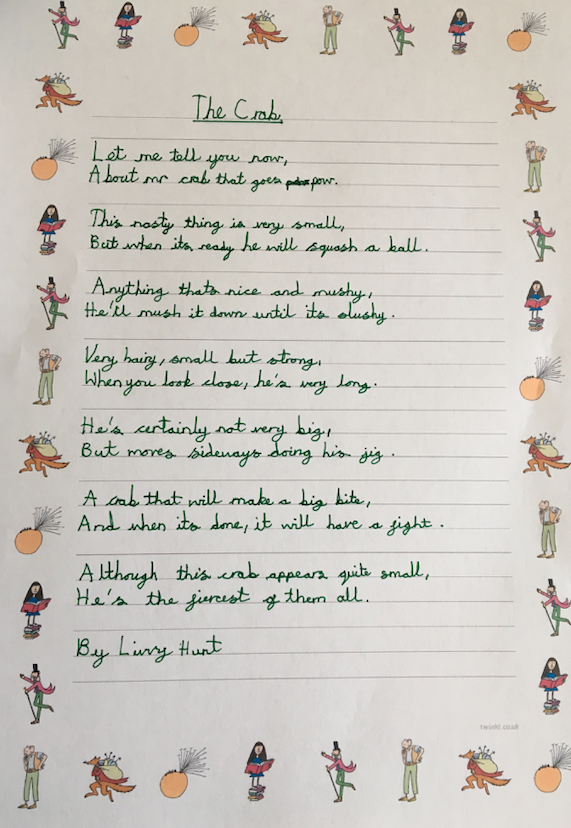 The Crab
Let me tell you now,
About mr crab that goes pow.
This nasty thing is very small,
But when its ready he will squash a ball.
Anything thats nice and mushy,
He'll mush it down until its slushy.
Very hairy, small but strong,
When you look close, he's very long.
He's certainly not very big,
But moves sideways doing his jig.
A crab that will make a big bite,
And when its done, it will have a fight.
Although this crab appears quite small,
He's the fiercest of them all.
By Livvy Hunt